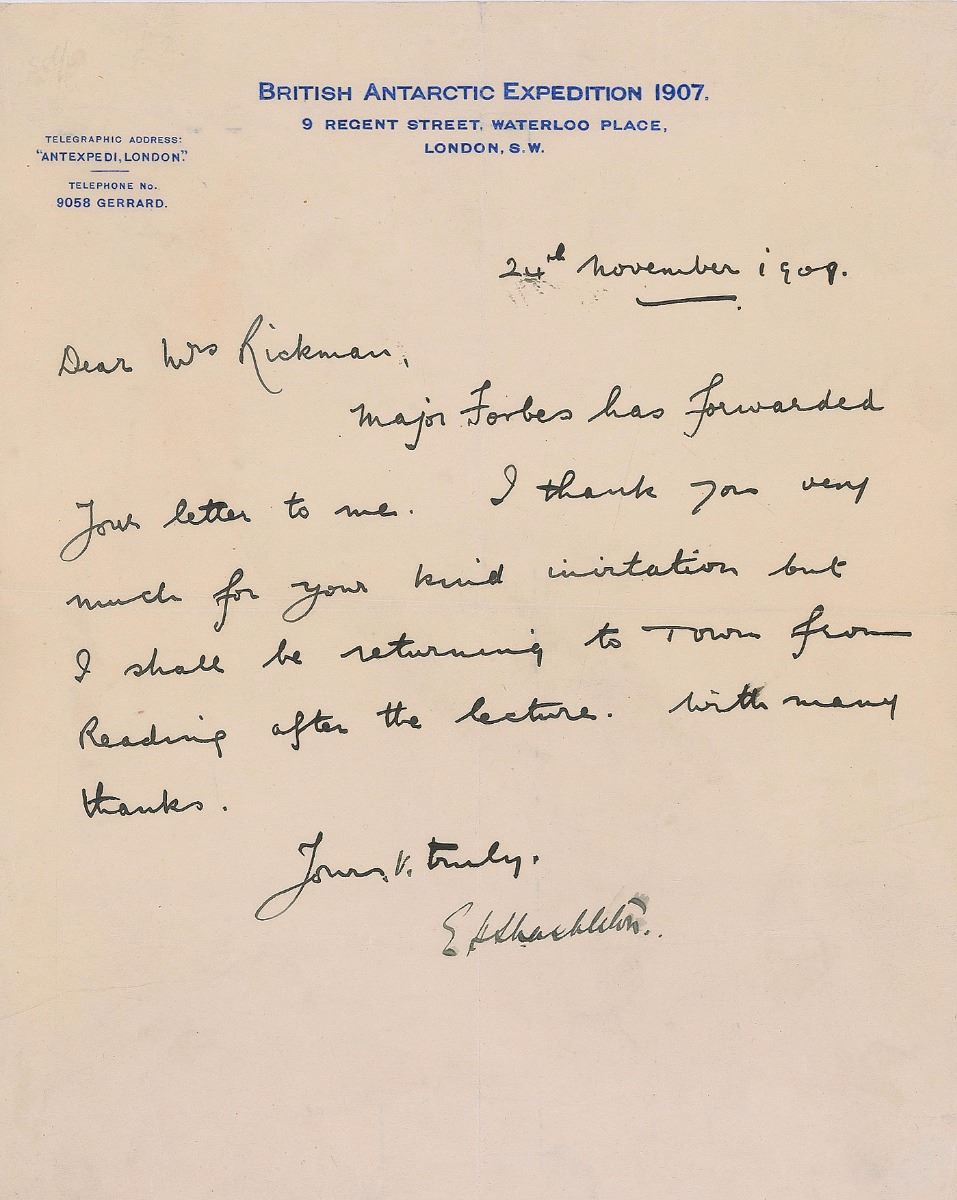 BRITISH ANTARCTIC EXPEDITION 1907.
9 REGENT STREET, WATERLOO PLACE,
LONDON, S.W.
TELEGRAPHIC ADDRESS:
"ANTEXPEDI, LONDON."
TELEPHONE No.
9058 GERRARD.
24th November 1909.
Dear Mrs Rickman,
Major Forbes has forwarded
Your letter to me. I thank you very
much for your kind invitation but
I shall be returning to Town from
Reading after the lecture. With many
thanks.
Yours v. truly.
E H Shackleton.